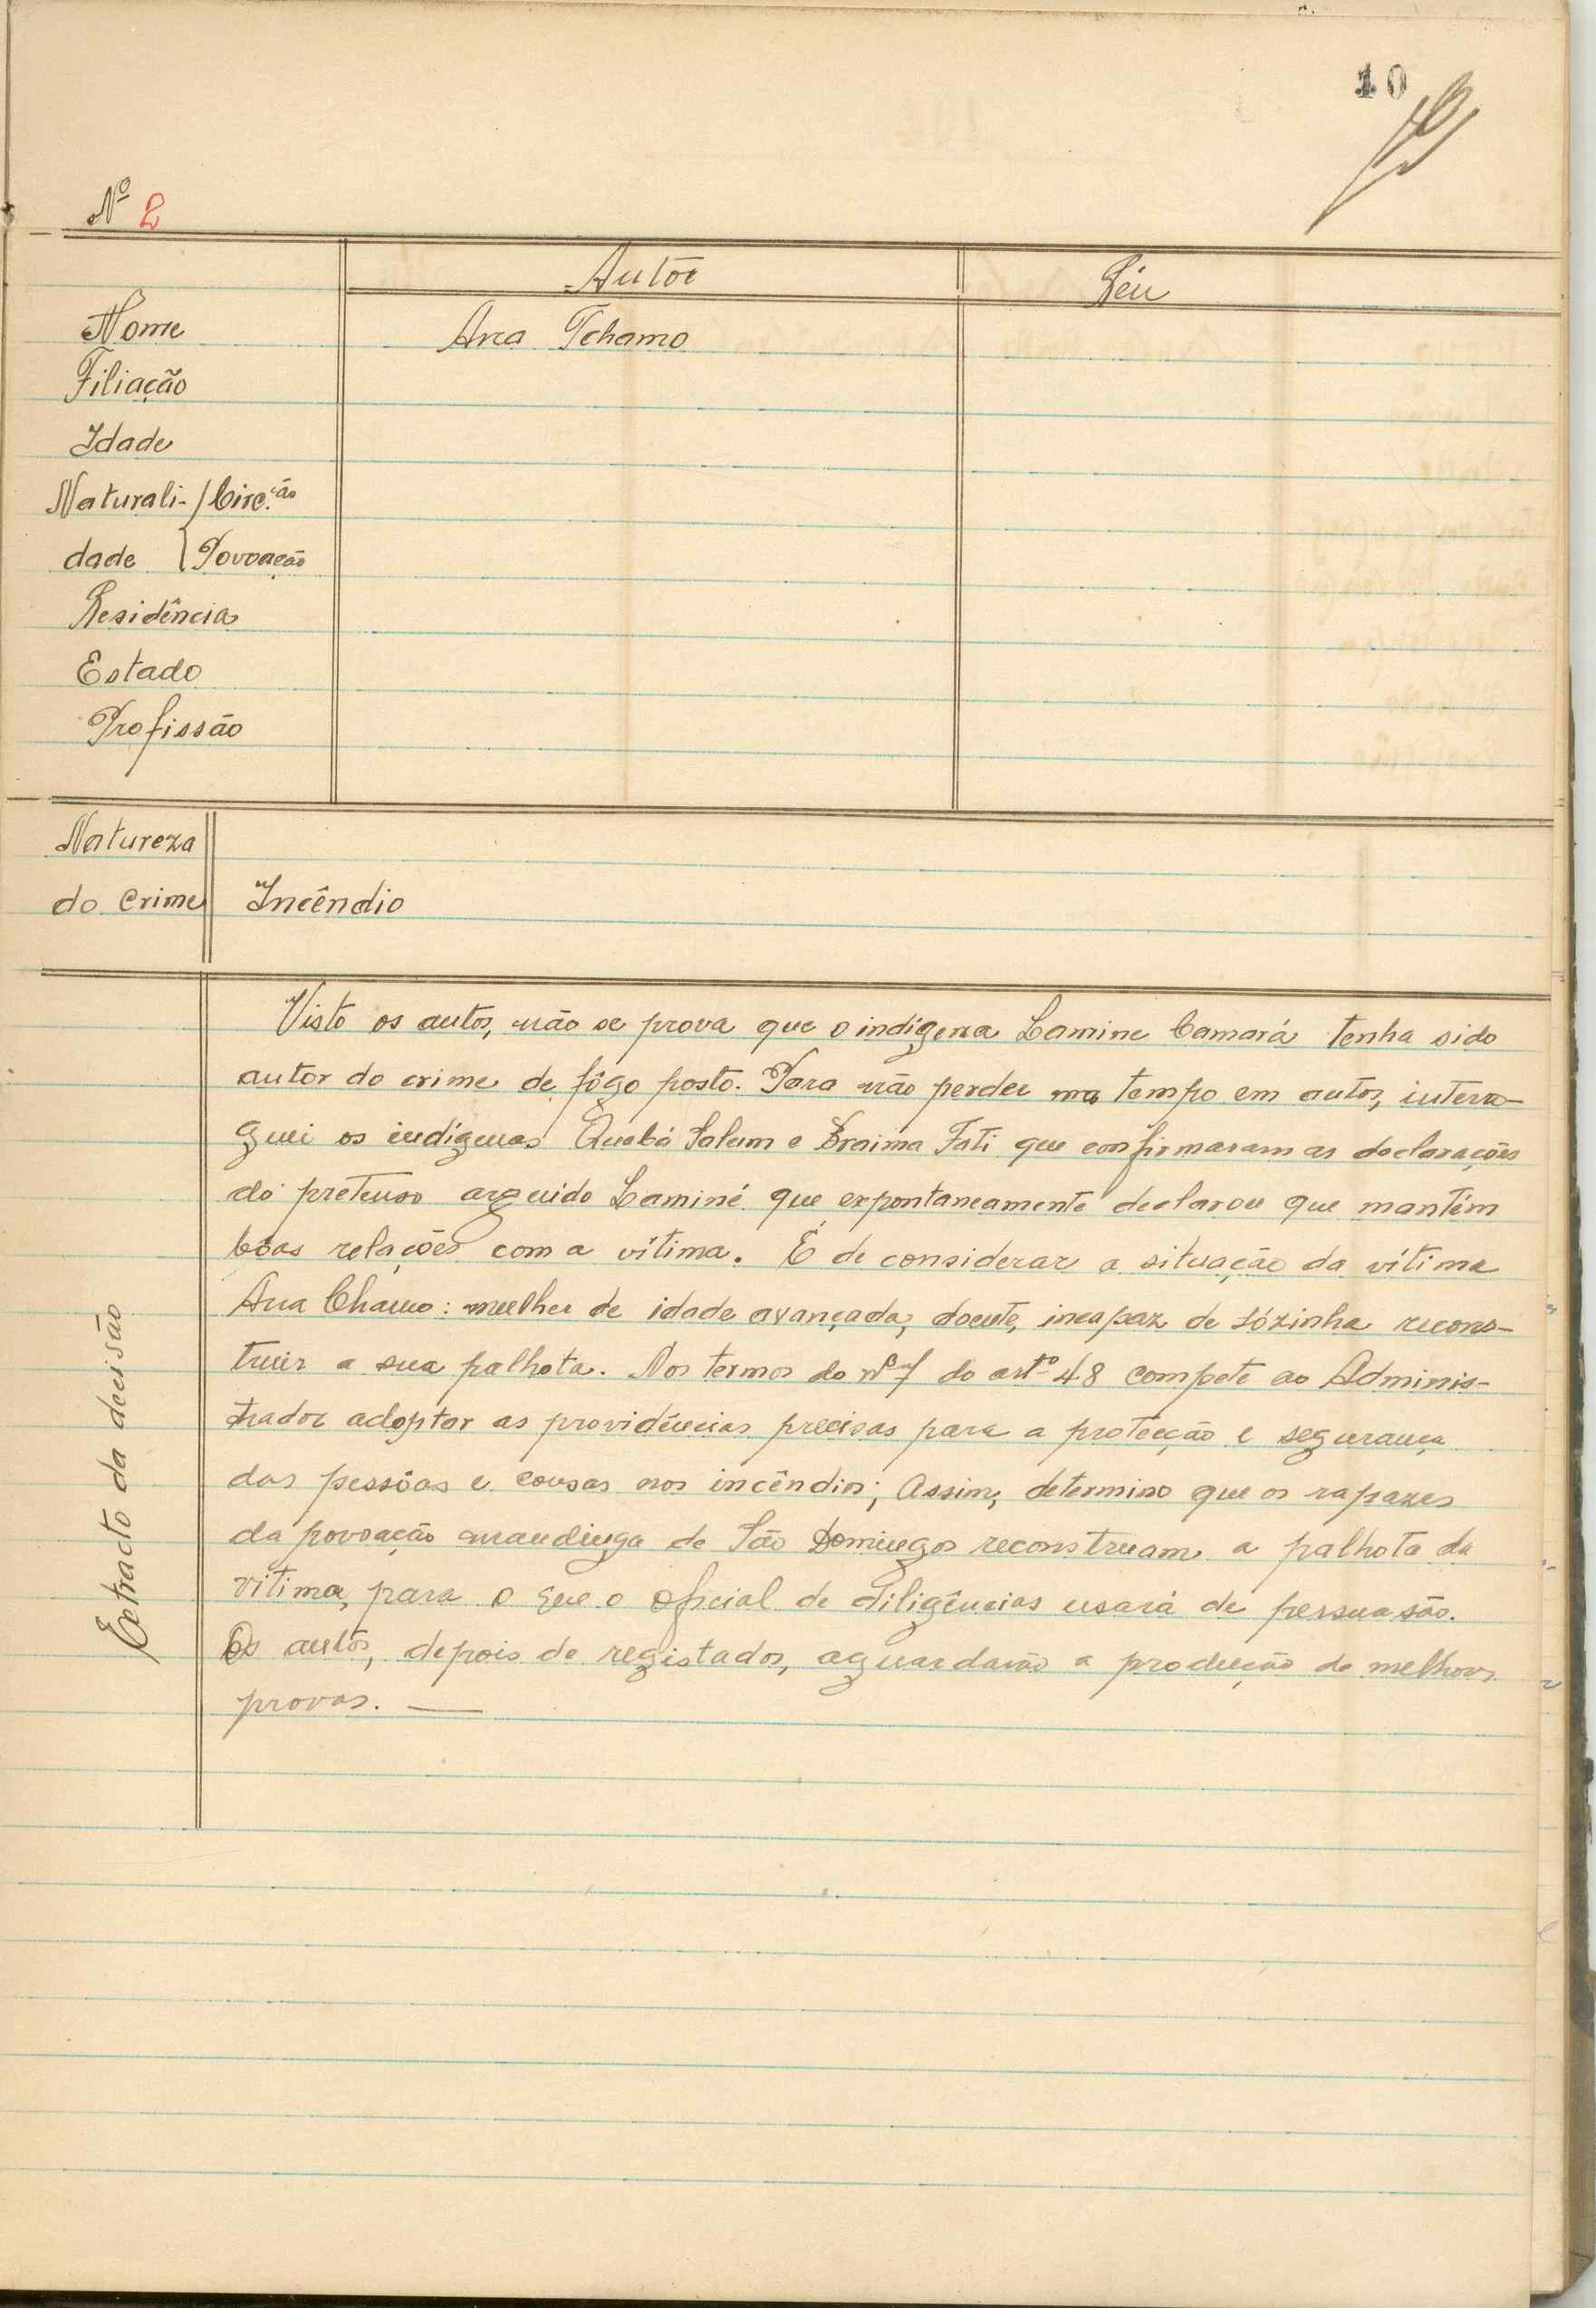 10
Nº 2
Autor Réu
Nome Ana Tchamo
Filiação
Idade
Naturali- / Circ.ção
dade { Povoação
Residência
Estado
Profissão
Natureza
do Crime Incêndio
Extracto da decisão
Visto os autos, não se prova que o indígena Lamine Camará tenha sido
autor do crime de fôgo posto. Para não perder tempo em autos, interro-
guei os indígenas Quebá Salum e Braima Fati que confirmaram as declarações
do pretenso arguido Laminé que expontaneamente declarou que mantém
bôas relações com a vítima. É de considerar a situação da vítima
Ana Chamo: mulher de idade avançada, doente, incapaz de sózinha recons-
truir a sua palhota. Nos termos do nº 7 do artº 48 compete ao Adminis-
trador adoptar as providências precisas para a protecção e segurança
das pessôas e cousas nos incêndios; Assim, determino que os rapazes
da povoação mandinga de São Domingos reconstruam a palhota da
vítima, para o que o oficial de diligências usará de persuasão.
Os autos, depois de registados, aguardarão a produção de melhores
provas. —